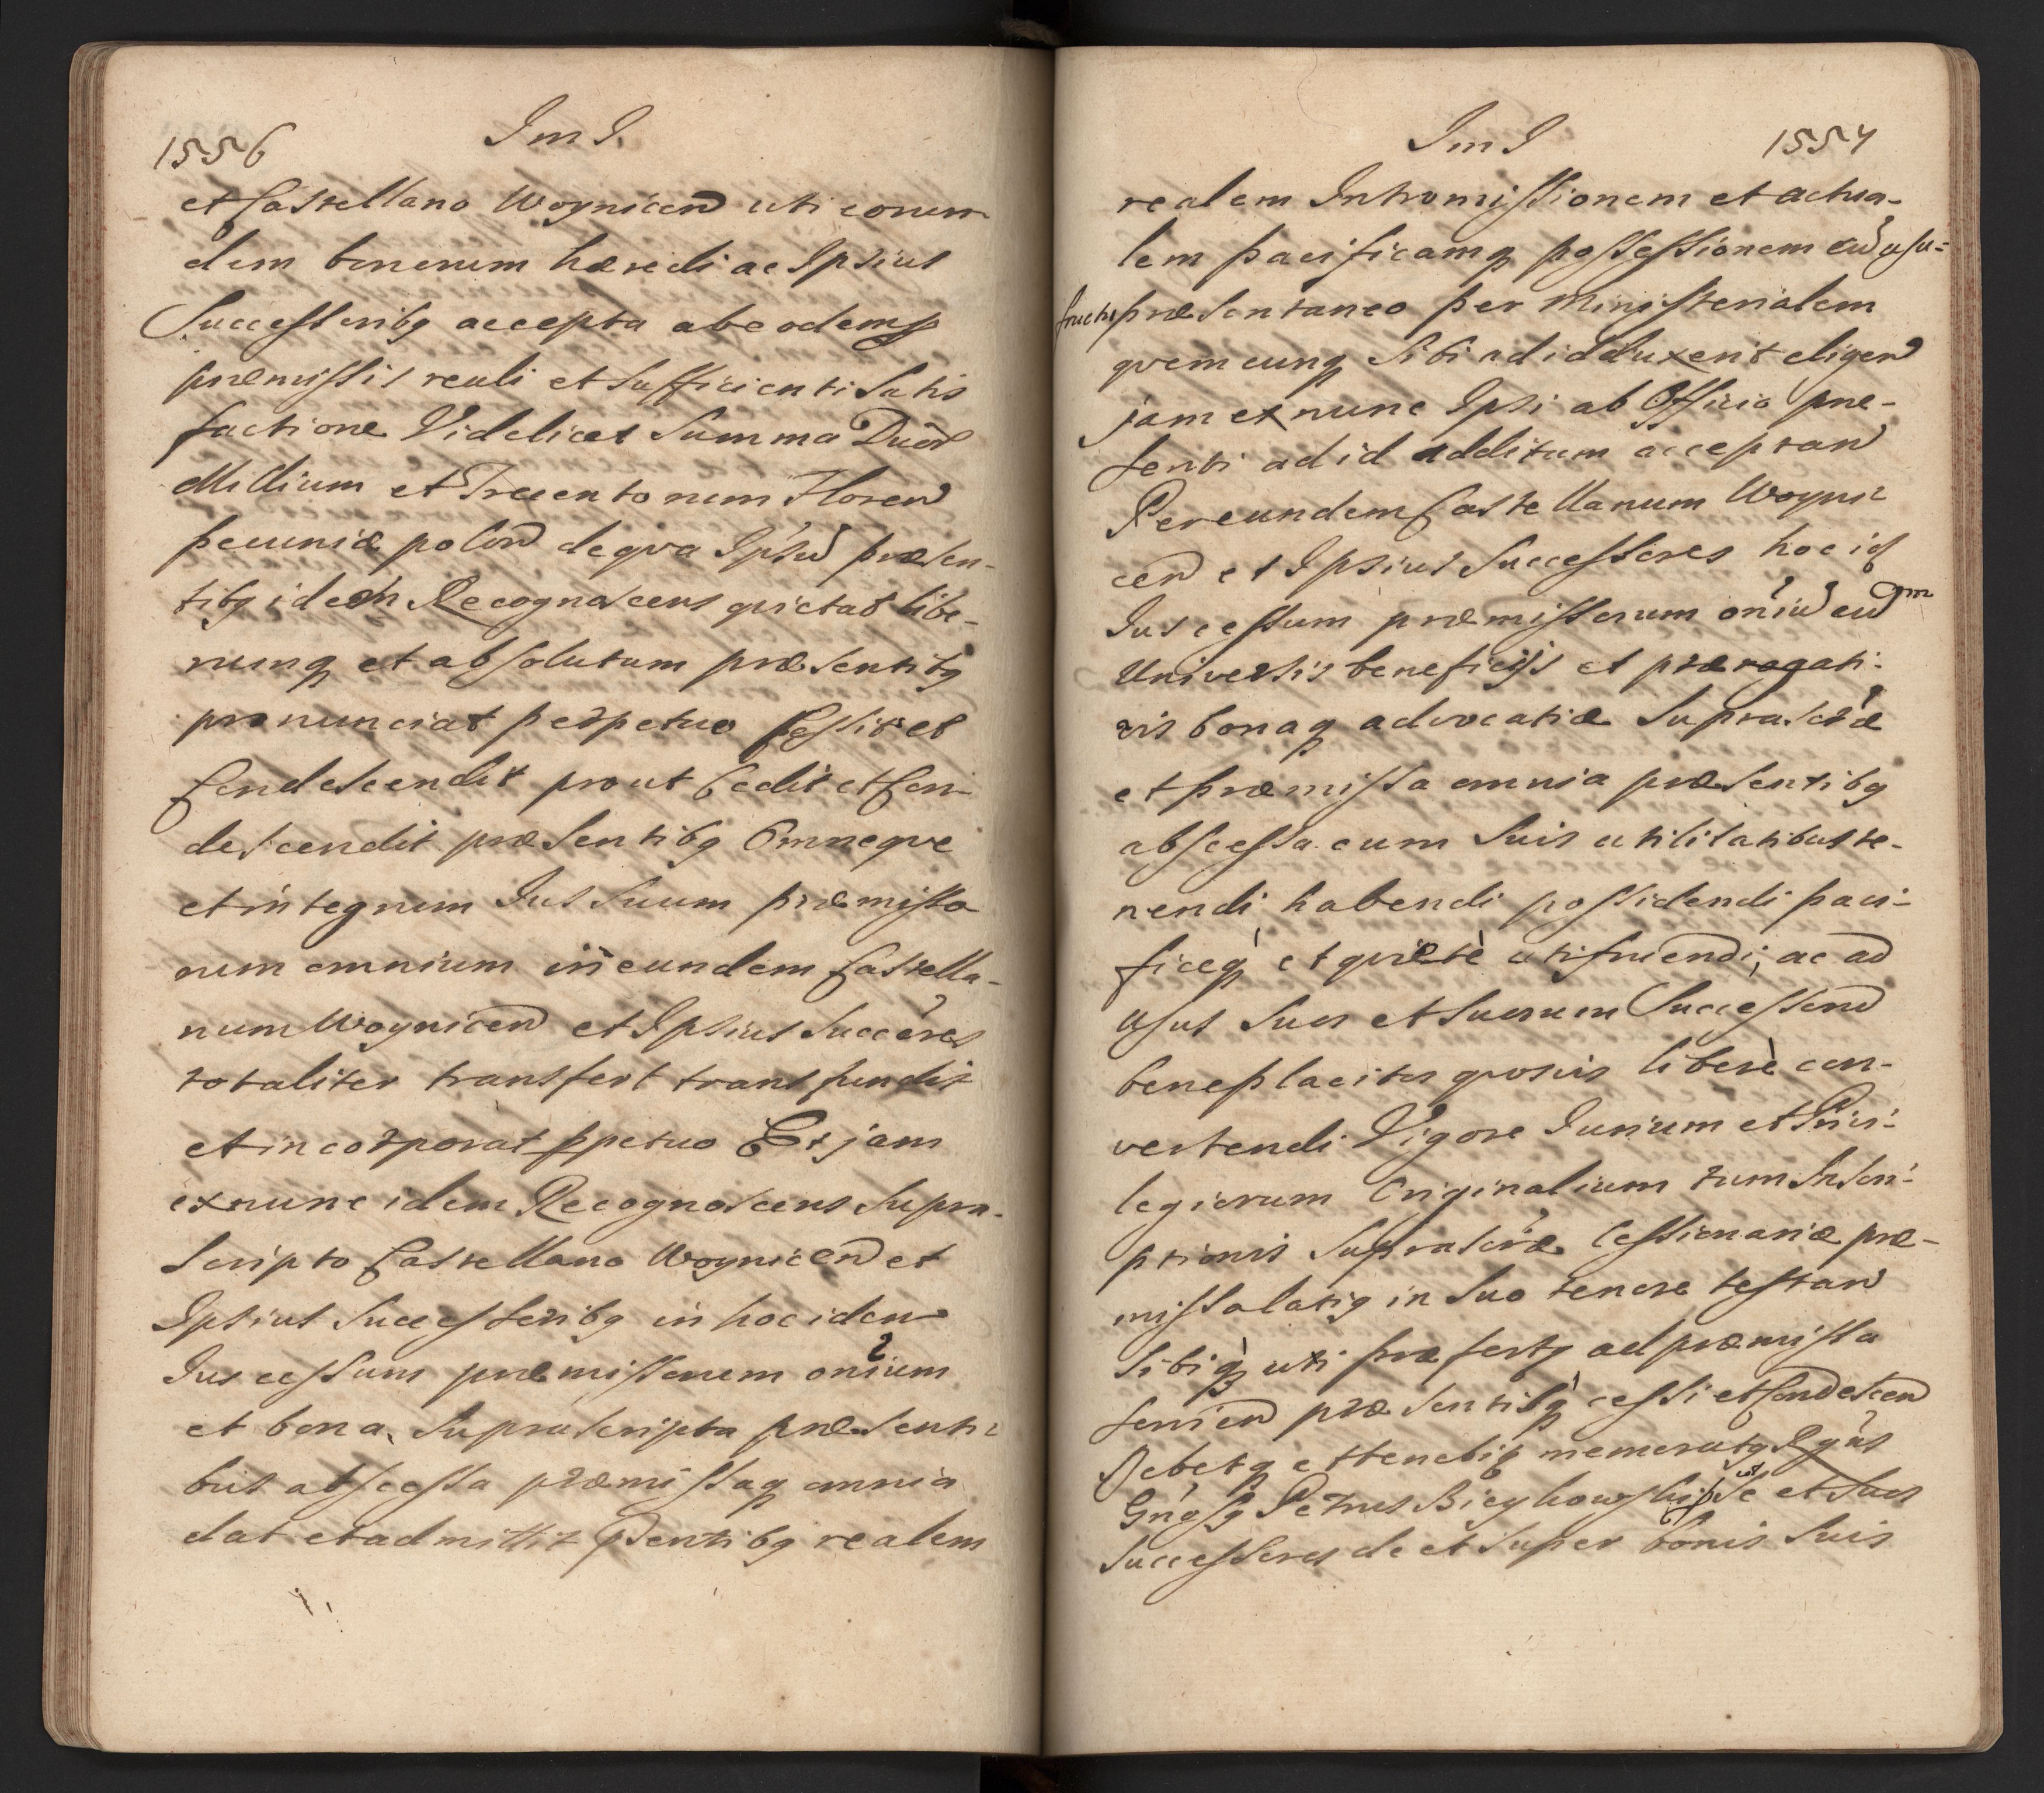 1556
Im I.
et Castellano Woynicen uti eorun-
dem bonorum hæredi ac Ipsius
Successoribq accepta ab eodem p
præmissis reali et sufficienti satis
factione Videlicet Summa Duor
Millium et Trecentorum Floren
pecuniæ polon de qva Ipsu præsen-
tibq idem Recognoscens qvietat libe-
rumq et absolutum præsentibq
pronunciat perpetuo Cessit et
Condescendit prout Cedit et Con-
descendit præsentibq Omneqve
et integrum Jus suum præmisso
rum omnium in eundem Castella-
num Woynicen et Ipsius Succeres
totaliter transfert transfundit
et incorporat ppetuo Et jam
ex nunc idem Recognoscens supra-
scripto Castellano Woynicen et
Ipsius Successoribq in hoc idem
Jus cessum præmissorum onium
et bona suprascripta præsenti-
bus abscessa præmissaq omnia
dat et admittit Psentibq realem
Im I
1557
realem Intromissionem et actua-
lem pacificamq possessionem cu usu-
fructu præsentaneo per Ministerialem
qvemcunq sibi ad id duxerit eligen
jam ex nunc Ipsi ab Officio præ-
senti ad id additum acceptan
Per eundem Castellanum Woyni-
cen et Ipsius Successores hoc id
Jus cessum præmissorum oniu cu om
Universis beneficijs et prærogati-
vis bonaq advocatiæ suprascræ
et præmissa omnia præsentibq
abscessa cum suis utilitatibus te-
nendi habendi possidendi paci-
ficeq et qviete utifruendi, ac ad
usus suos et suorum Successorum
beneplacitos qvosvis libere con-
vertendi Vigore Jurium et Privi-
legiorum Originalium tum Inscri-
ptionis suprascræ Cessionariæ præ-
missalatiq in suo tenore testan
sibiq uti præfertq ad præmissa
servien præsentibq cessi et Condescen
Debetq et tenebitq memoratq Rgns
Gnosq Petrus Bieykowski Se et suos
Successores de et super bonis suis